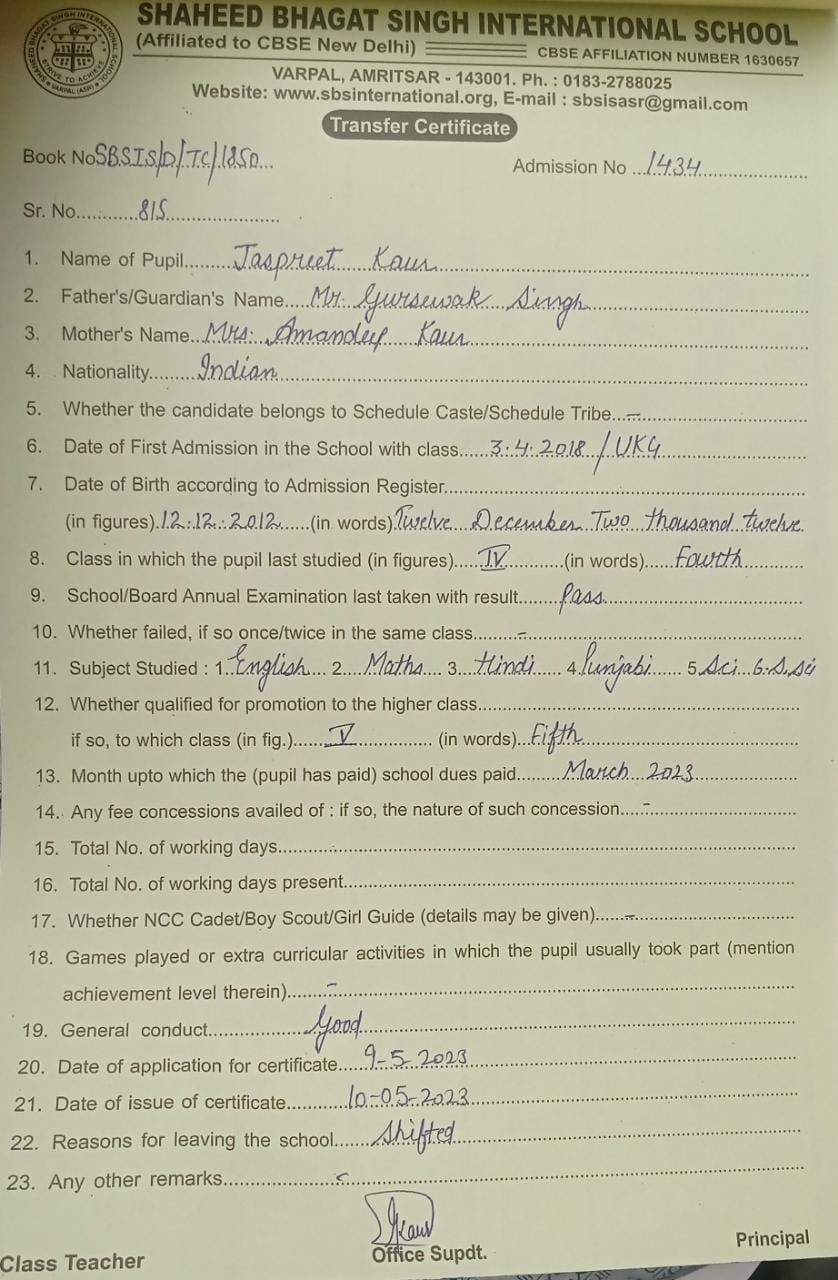 SHAHEED BHAGAT SINGH INTERNATIONAL SCHOOL
(Affiliated to CBSE New Delhi) CBSE AFFILIATION NUMBER 1630657
VARPAL, AMRITSAR - 143001. Ph. : 0183-2788025
Website: www.sbsinternational.org, E-mail : sbsisasr@gmail.com
Transfer Certificate
Book No SBSIS/D/TC/1850 Admission No 1434
Sr. No. 815
1. Name of Pupil Jaspreet Kaur
2. Father's/Guardian's Name Mr. Gursewak Singh
3. Mother's Name Mrs. Amandeep Kaur
4. Nationality Indian
5. Whether the candidate belongs to Schedule Caste/Schedule Tribe –
6. Date of First Admission in the School with class 3.4.2018 / UKG
7. Date of Birth according to Admission Register
(in figures) 12.12.2012 (in words) Twelve December Two thousand twelve
8. Class in which the pupil last studied (in figures) IV (in words) Fourth
9. School/Board Annual Examination last taken with result Pass
10. Whether failed, if so once/twice in the same class –
11. Subject Studied : 1. English 2. Maths 3. Hindi 4. Punjabi 5. Sci 6. S.Sci
12. Whether qualified for promotion to the higher class
if so, to which class (in fig.) V (in words) Fifth
13. Month upto which the (pupil has paid) school dues paid March 2023
14. Any fee concessions availed of : if so, the nature of such concession –
15. Total No. of working days
16. Total No. of working days present
17. Whether NCC Cadet/Boy Scout/Girl Guide (details may be given) –
18. Games played or extra curricular activities in which the pupil usually took part (mention
achievement level therein) –
19. General conduct Good
20. Date of application for certificate 9-5-2023
21. Date of issue of certificate 10-05-2023
22. Reasons for leaving the school Shifted
23. Any other remarks
Kaur
Class Teacher Office Supdt. Principal